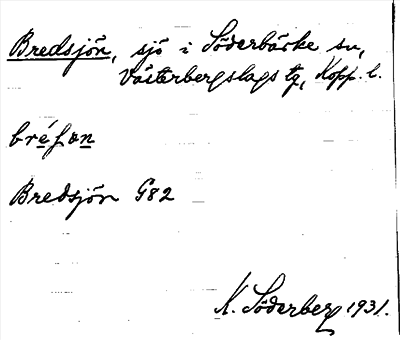 Bredsjön, sjö i Söderbärke sn,
Västerbergslags tg, Kopp. l.
Bredsjön G82
K. Söderberg 1931.